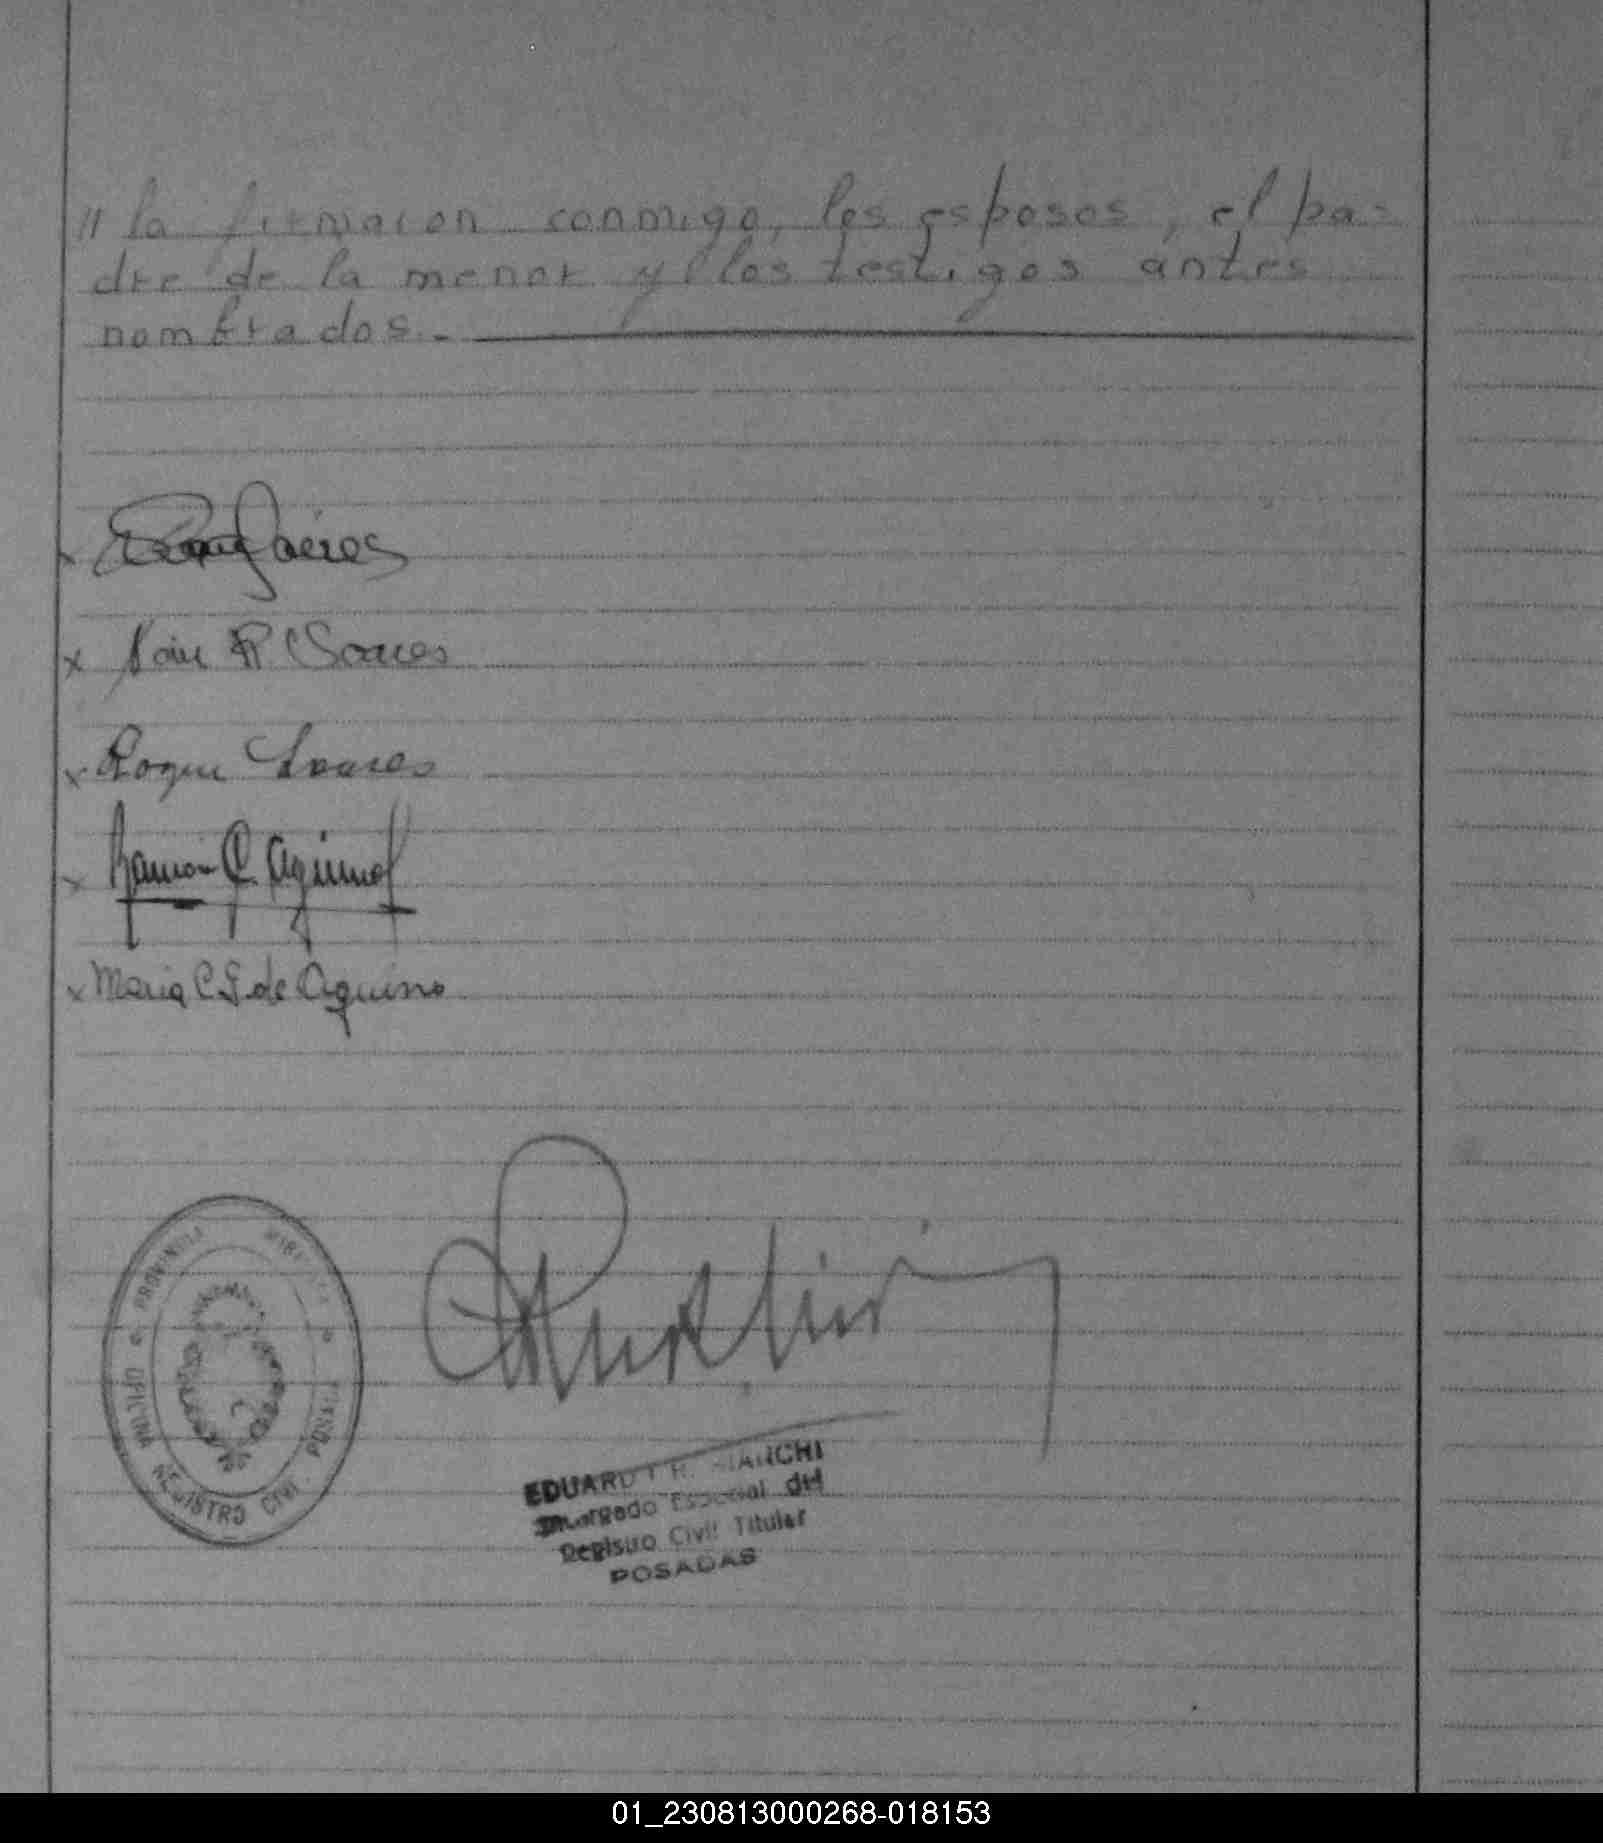 // la firmaron conmigo, los esposos, el pa-
dre de la menor y los testigos antes
nombrados.-
x Nair R Soares
x Roque Soares
x Ramón C. Aquino
x Maria C S. de Aquino
PROVINCIA MISIONES
OFICINA REGISTRO CIVIL POSADAS
EDUARDO R. BIANCHI
Encargado Especial del
Registro Civil Titular
POSADAS
01_230813000268-018153